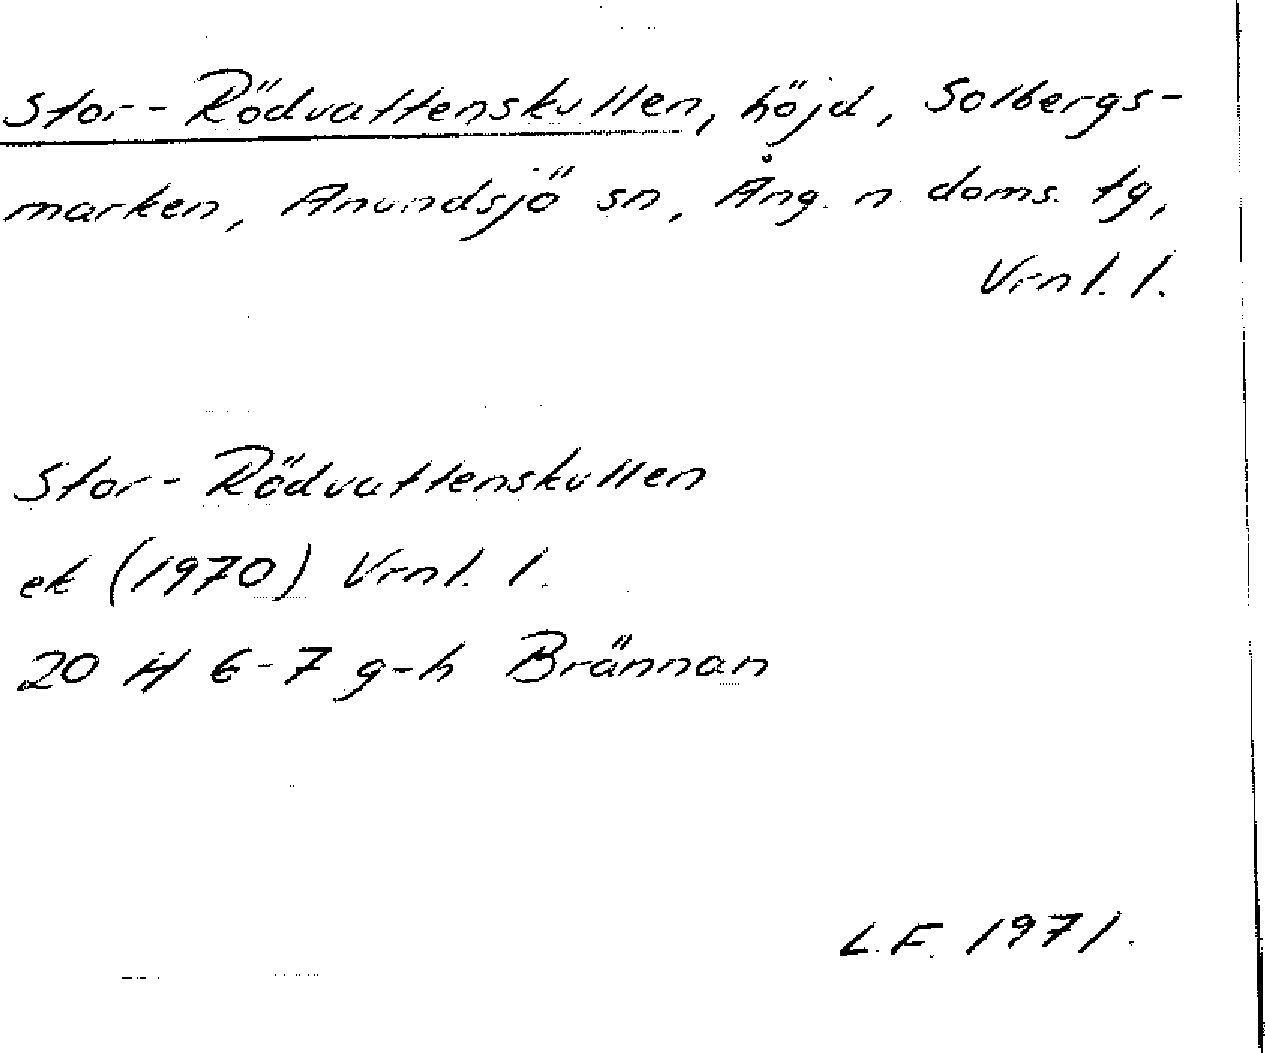 Stor-Rödvattenskullen, höjd, Solbergs-
marken, Anundsjö sn, Ång. n. doms. tg,
Vrnl. l.
Stor-Rödvattenskullen
ek (1970) Vrnl. l.
20 H 6-7 g-h Brännan
L.F. 1971.